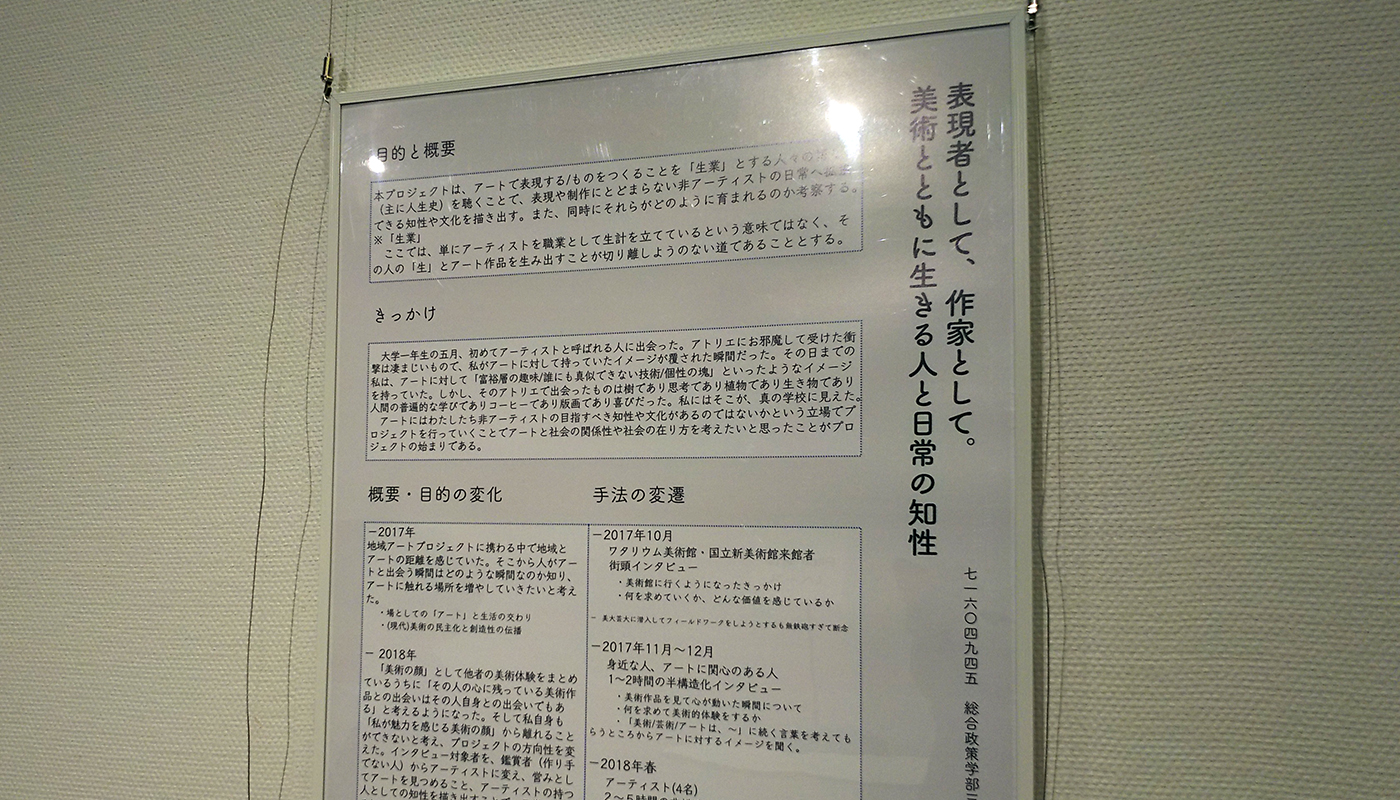 表現者として、作家として。
美術とともに生きる人と日常の知性
七一六〇四九四五 総合政策学部
目的と概要
本プロジェクトは、アートで表現する/ものをつくることを「生業」とする人々の
（主に人生史）を聴くことで、表現や制作にとどまらない非アーティストの日常へ
できる知性や文化を描き出す。また、同時にそれらがどのように育まれるのか考察する。
※「生業」
ここでは、単にアーティストを職業として生計を立てているという意味ではなく、そ
の人の「生」とアート作品を生み出すことが切り離しようのない道であることとする。
きっかけ
大学一年生の五月、初めてアーティストと呼ばれる人に出会った。アトリエにお邪魔して受けた衝
撃は凄まじいもので、私がアートに対して持っていたイメージが覆された瞬間だった。その日までの
私は、アートに対して「富裕層の趣味/誰にも真似できない技術/個性の塊」といったようなイメージ
を持っていた。しかし、そのアトリエで出会ったものは樹であり思考であり植物であり生き物であり
人間の普遍的な学びでありコーヒーであり版画であり喜びだった。私にはそこが、真の学校に見えた。
アートにはわたしたち非アーティストの目指すべき知性や文化があるのではないかという立場でプ
ロジェクトを行っていくことでアートと社会の関係性や社会の在り方を考えたいと思ったことがプロ
ジェクトの始まりである。
概要・目的の変化
−2017年
地域アートプロジェクトに携わる中で地域と
アートの距離を感じていた。そこから人がアー
トと出会う瞬間はどのような瞬間なのか知り、
アートに触れる場所を増やしていきたいと考え
た。
・場としての「アート」と生活の交わり
・(現代)美術の民主化と創造性の伝播
− 2018年
「美術の顔」として他者の美術体験をまとめ
ているうちに「その人の心に残っている美術作
品との出会いはその人自身との出会いでもあ
る」と考えるようになった。そして私自身も
「私が魅力を感じる美術の顔」から離れること
ができないと考え、プロジェクトの方向性を変
えた。インタビュー対象者を、鑑賞者（作り手
でない人）からアーティストに変え、営みとし
てアートを見つめること、アーティストの持つ
人としての知性を描き出すこと
手法の変遷
−2017年10月
ワタリウム美術館・国立新美術館来館者
街頭インタビュー
・美術館に行くようになったきっかけ
・何を求めていくか、どんな価値を感じているか
− 美大芸大に潜入してフィールドワークをしようとするも無鉄砲すぎて断念
−2017年11月〜12月
身近な人、アートに関心のある人
1〜2時間の半構造化インタビュー
・美術作品を見て心が動いた瞬間について
・何を求めて美術的体験をするか
・「美術/芸術/アートは、〜」に続く言葉を考えても
らうところからアートに対するイメージを聞く。
−2018年春
アーティスト(4名)